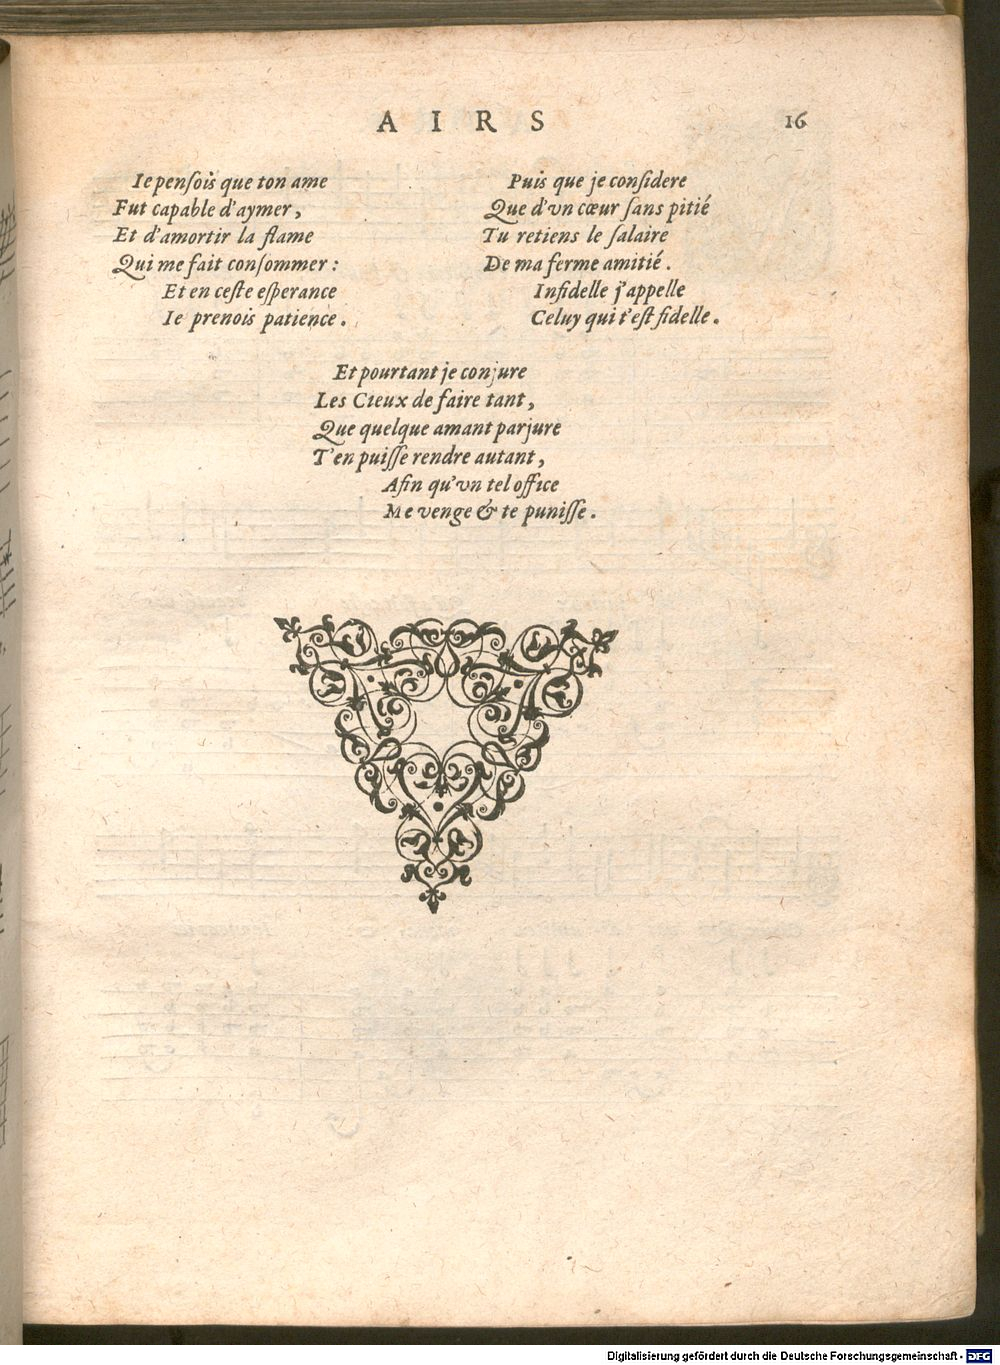 AIRS 16
Ie penſois que ton ame
Fut capable d'aymer,
Et d'amortir la flame
Qui me fait conſommer:
Et en ceſte eſperance
Ie prenois patience.
Puis que je conſidere
Que d'vn cœur ſans pitié
Tu retiens le ſalaire
De ma ferme amitié.
Infidelle j'appelle
Celuy qui t'eſt fidelle.
Et pourtant je conjure
Les Cieux de faire tant,
Que quelque amant parjure
T'en puiſſe rendre autant,
Afin qu'vn tel office
Me venge & te puniſſe.
Digitalisierung gefördert durch die Deutsche Forschungsgemeinschaft - DFG